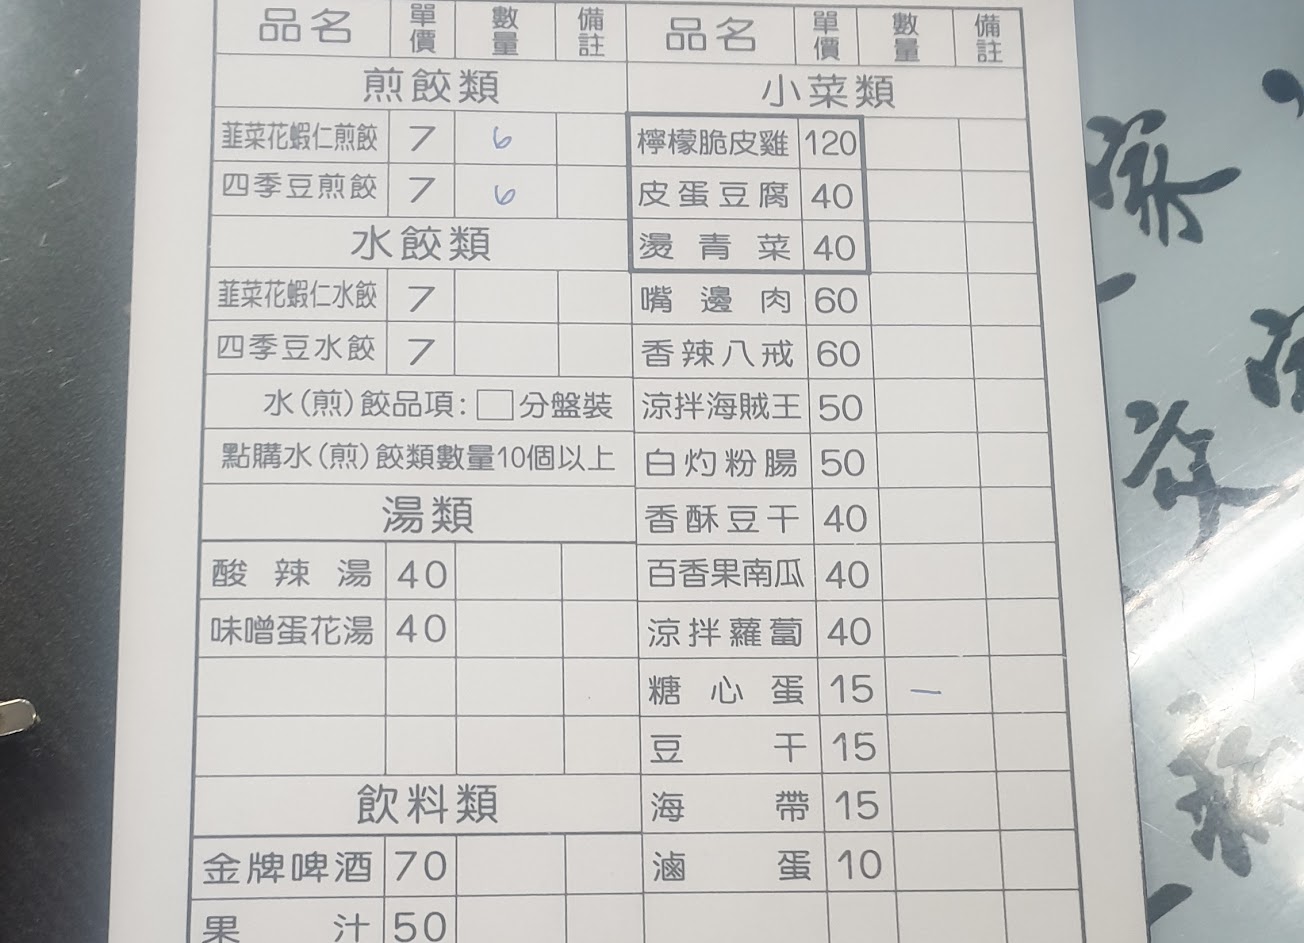 品名 單價 數量 備註 品名 單價 數量 備註
煎餃類
韮菜花蝦仁煎餃 7 6
四季豆煎餃 7 6
水餃類
韮菜花蝦仁水餃 7
四季豆水餃 7
水(煎)餃品項:□分盤裝
點購水(煎)餃類數量10個以上
湯類
酸辣湯 40
味噌蛋花湯 40
飲料類
金牌啤酒 70
果汁 50
小菜類
檸檬脆皮雞 120
皮蛋豆腐 40
燙青菜 40
嘴邊肉 60
香辣八戒 60
涼拌海賊王 50
白灼粉腸 50
香酥豆干 40
百香果南瓜 40
涼拌蘿蔔 40
糖心蛋 15 一
豆干 15
海帶 15
滷蛋 10
家